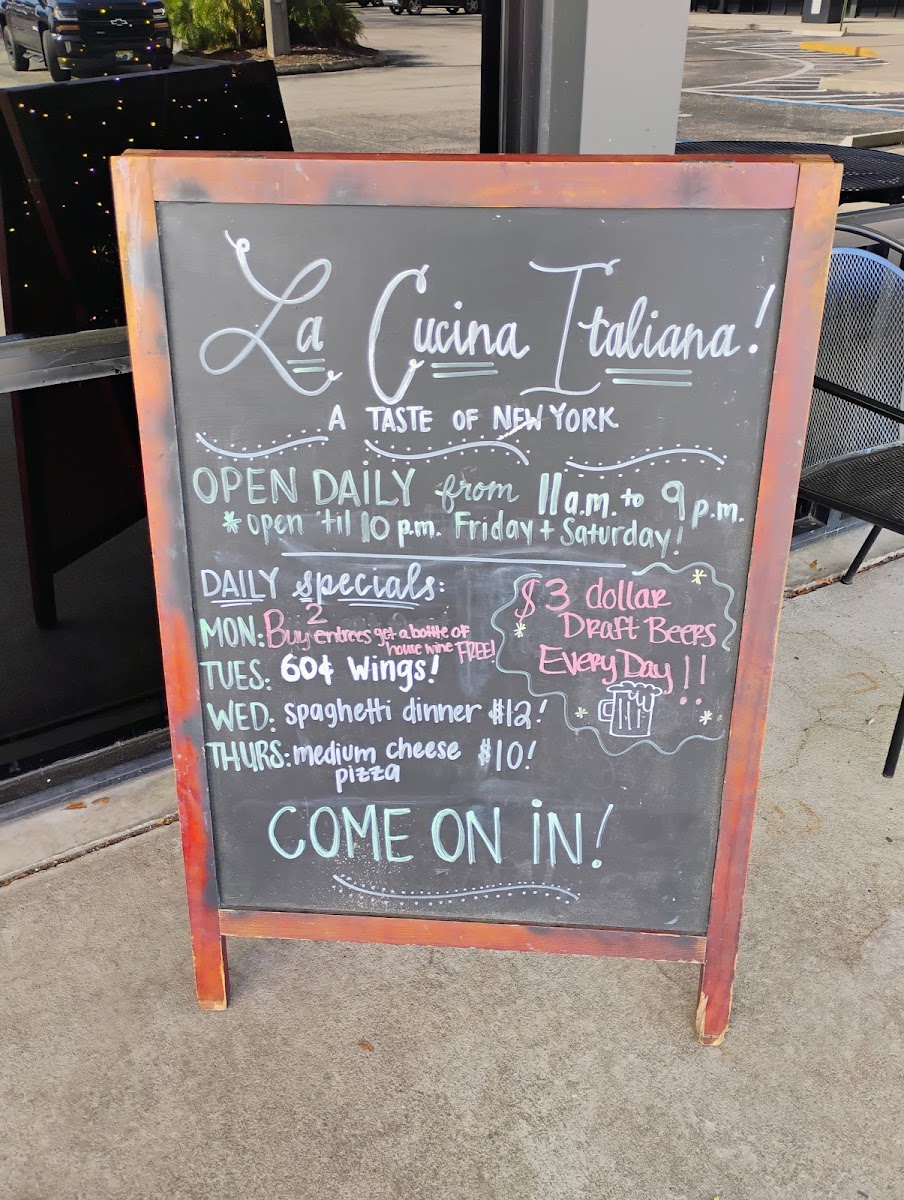 La Cucina Italiana!
A TASTE OF NEW YORK
OPEN DAILY from 11 a.m. to 9 p.m.
* open 'til 10 p.m. Friday + Saturday!
DAILY specials:
MON: Buy 2 entrees get a bottle of
house wine FREE!
TUES: 60¢ Wings!
WED: spaghetti dinner $12!
THURS: medium cheese $10!
pizza
$3 dollar
Draft Beers
Every Day!!
COME ON IN!